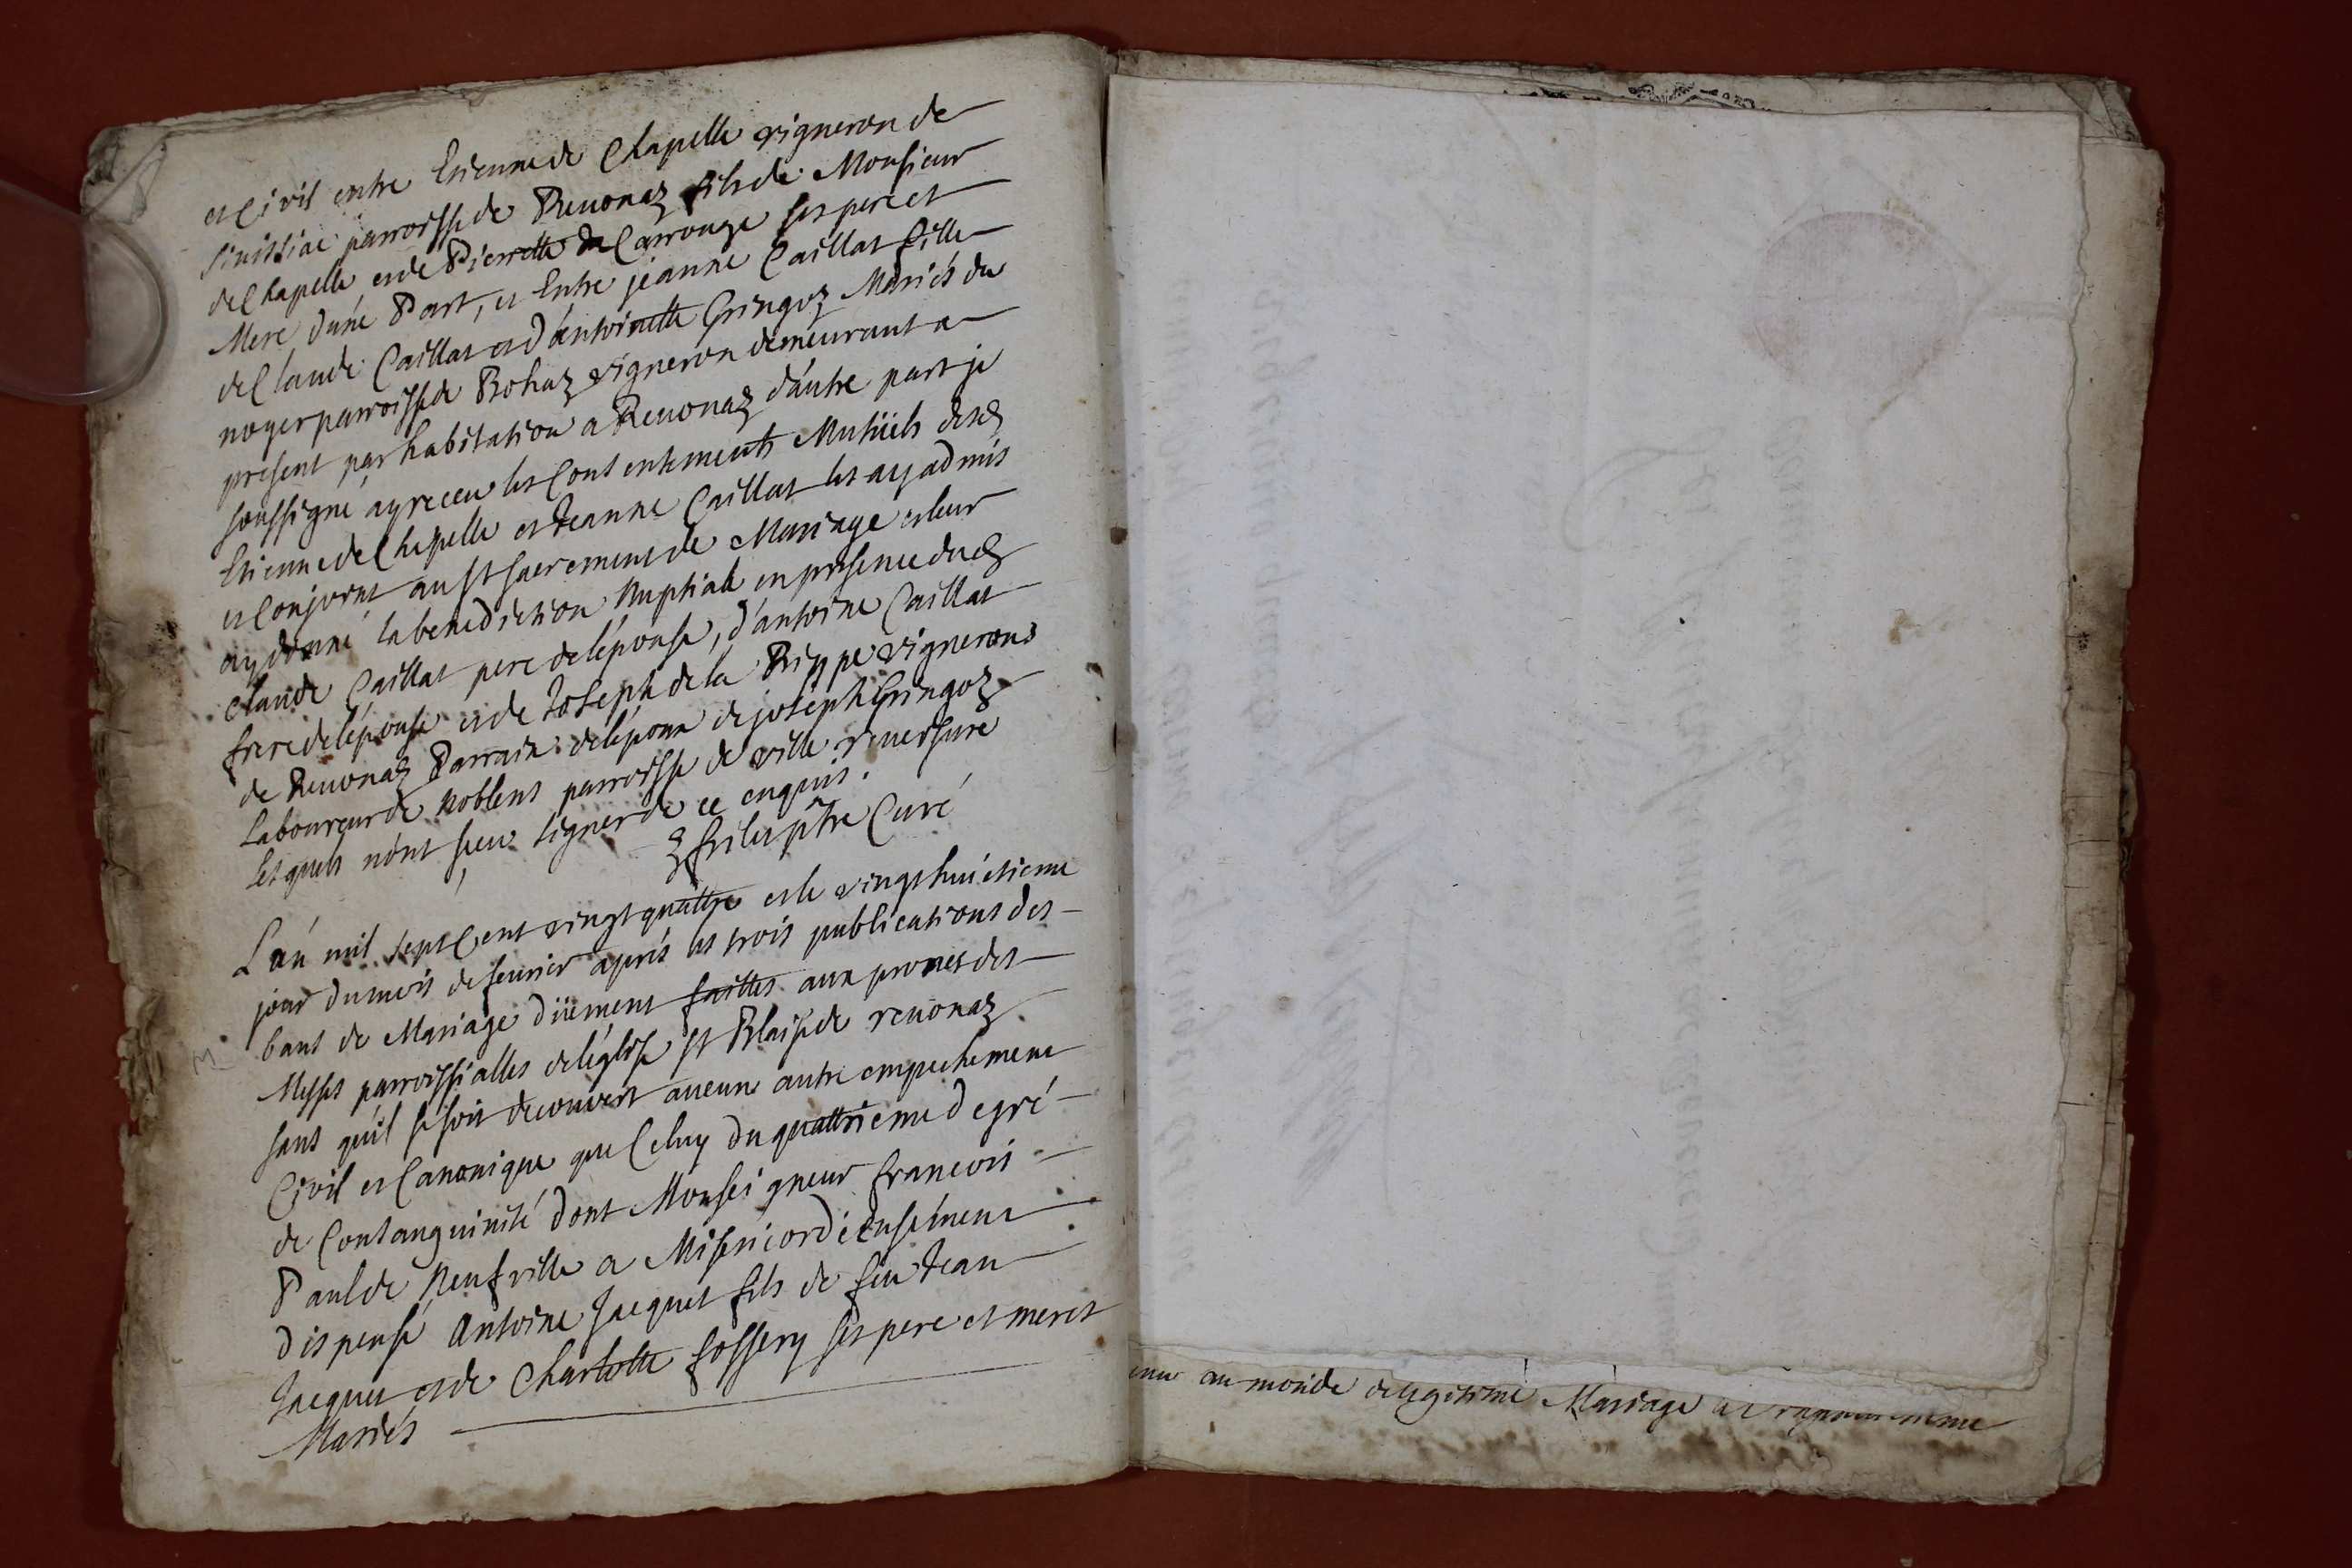 et Civil entre Etienne de Chapelle vigneron de
Sinissiac parroisse de Reuonaz fils de Monsieur
de Chapelle et de Pierrette de Carrouge ses pere et
Mere d'une Part, et Entre jeanne Caillat fille
de Claude Caillat et d'antoinette Gringoz Mariés du
noyer parroisse de Bohaz vigneron demeurant a
present par habitation a Reuonaz d'autre part je
soussigné ay receu les Consentements Mutüels desd
Etienne de Chapelle et Jeanne Caillat les ay admis
et Conjoint au st sacrement de Mariage et leur
ay donné la benediction Nuptiale en presence dud
Claude Caillat pere de lépouse, d'antoine Caillat
frere de lépouse et de Joseph de la Rippe vignerons
de Reuonaz Parrain de lépoux de joseph Gringoz
Laboureur de Noblens parroisse de ville reuersure
Lesquels n'ont sceu signer de ce enquis.
ptre Curé
L'an mil sept Cent vingt quattre et le vingt huictieme
jour du mois de feurier aprés les trois publications des
bans de Mariage düement faittes aux prones des
Messes parroissialles de léglise st Blaise de reuonaz
sans qu'il se soit decouvert aucune autre empechement
Civil et Canonique que Celuy du quattrieme degré
de Consanguinité dont Monseigneur francois
Paul de Neufville a Misericordieusement
dispensé Antoine Jacquet fils de feu Jean
Jacquet et de Charlotte fossery ses pere et meres
Mariés
au monde de legitime Mariage